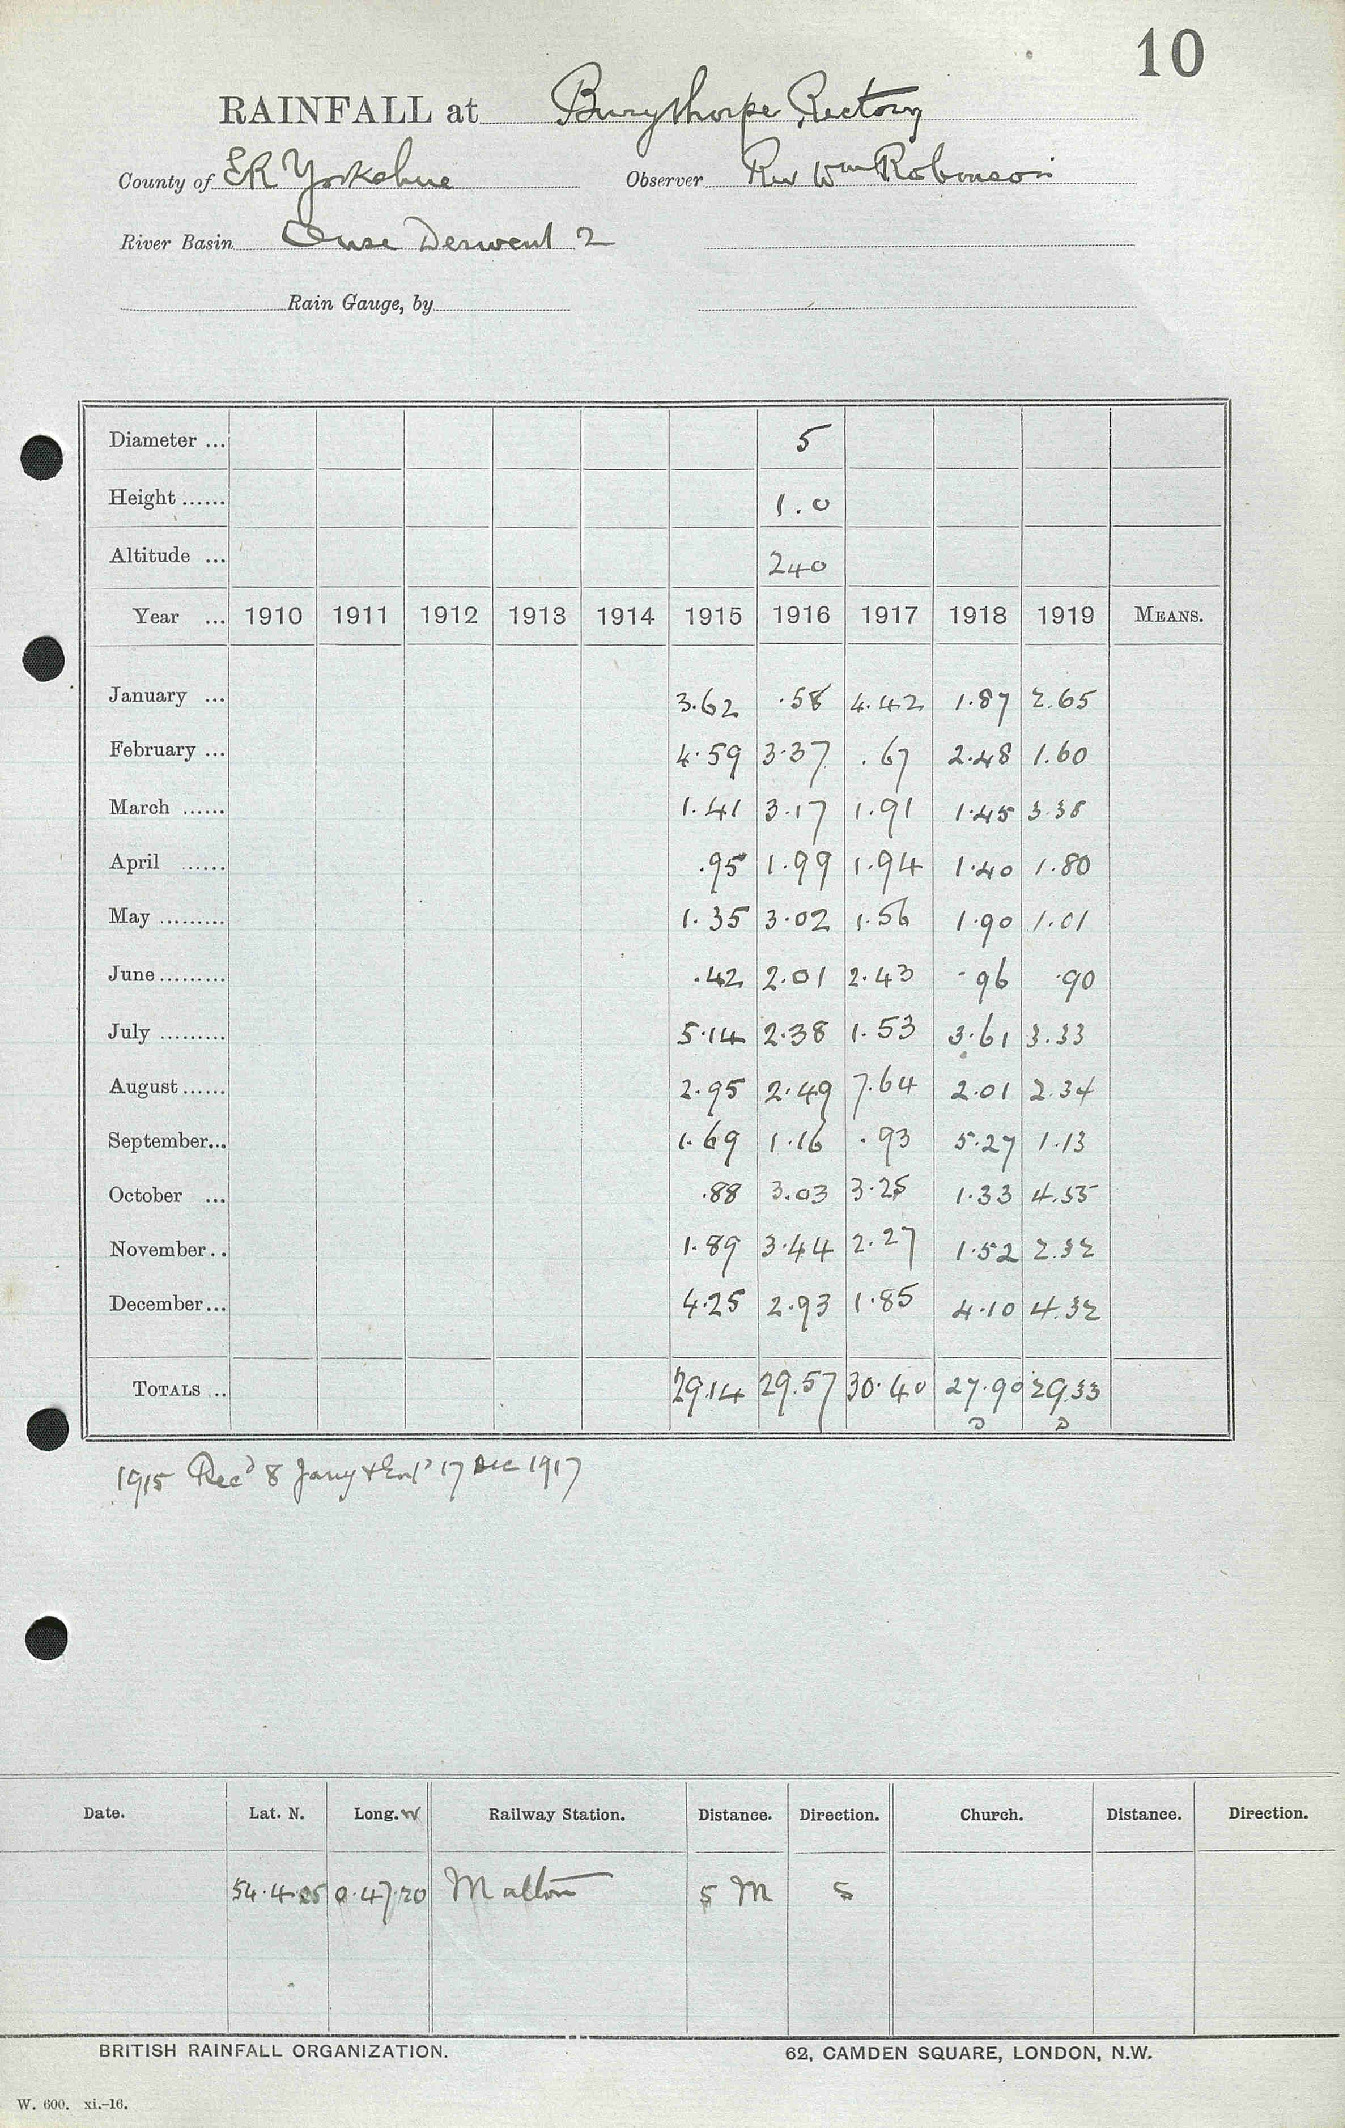 10
RAINFALL at Burythorpe Rectory
County of ER Yorkshire Observer Rev Wm Robinson
River Basin Ouse Derwent 2
Rain Gauge, by
Diameter ... 5
Height ...... 1.0
Altitude ... 240
Year ... 1910 1911 1912 1913 1914 1915 1916 1917 1918 1919 MEANS.
January ... 3.62 .58 4.42 1.87 2.65
February ... 4.59 3.37 .67 2.48 1.60
March ...... 1.41 3.17 1.91 1.45 3.38
April ...... .95 1.99 1.94 1.40 1.80
May ......... 1.35 3.02 1.56 1.90 1.01
June ......... .42 2.01 2.43 .96 .90
July ......... 5.14 2.38 1.53 3.61 3.33
August ...... 2.95 2.49 7.64 2.01 2.34
September... 1.69 1.16 .93 5.27 1.13
October ... .88 3.03 3.25 1.33 4.55
November.. 1.89 3.44 2.27 1.52 2.32
December... 4.25 2.93 1.85 4.10 4.32
TOTALS .. 29.14 29.57 30.40 27.90 29.33
1915 Recd 8 Jany & 17 Dec 1917
Date. Lat. N. Long. W Railway Station. Distance. Direction. Church. Distance. Direction.
54.4.25 0.47.20 Malton 5 M S
BRITISH RAINFALL ORGANIZATION. 62, CAMDEN SQUARE, LONDON, N.W.
W. 600. xi.-16.